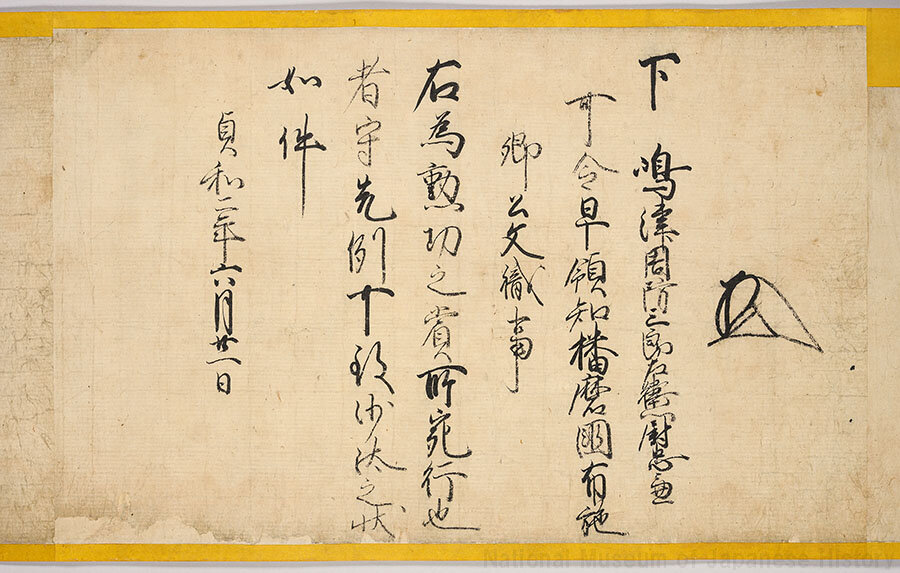 下 嶋津周防三郎左衛門尉忠兼
可令早領知播磨國布施
郷公文職事
右為勲功之賞所宛行也
者守先例可致沙汰之状
如件
貞和二年六月廿一日
National Museum of Japanese History